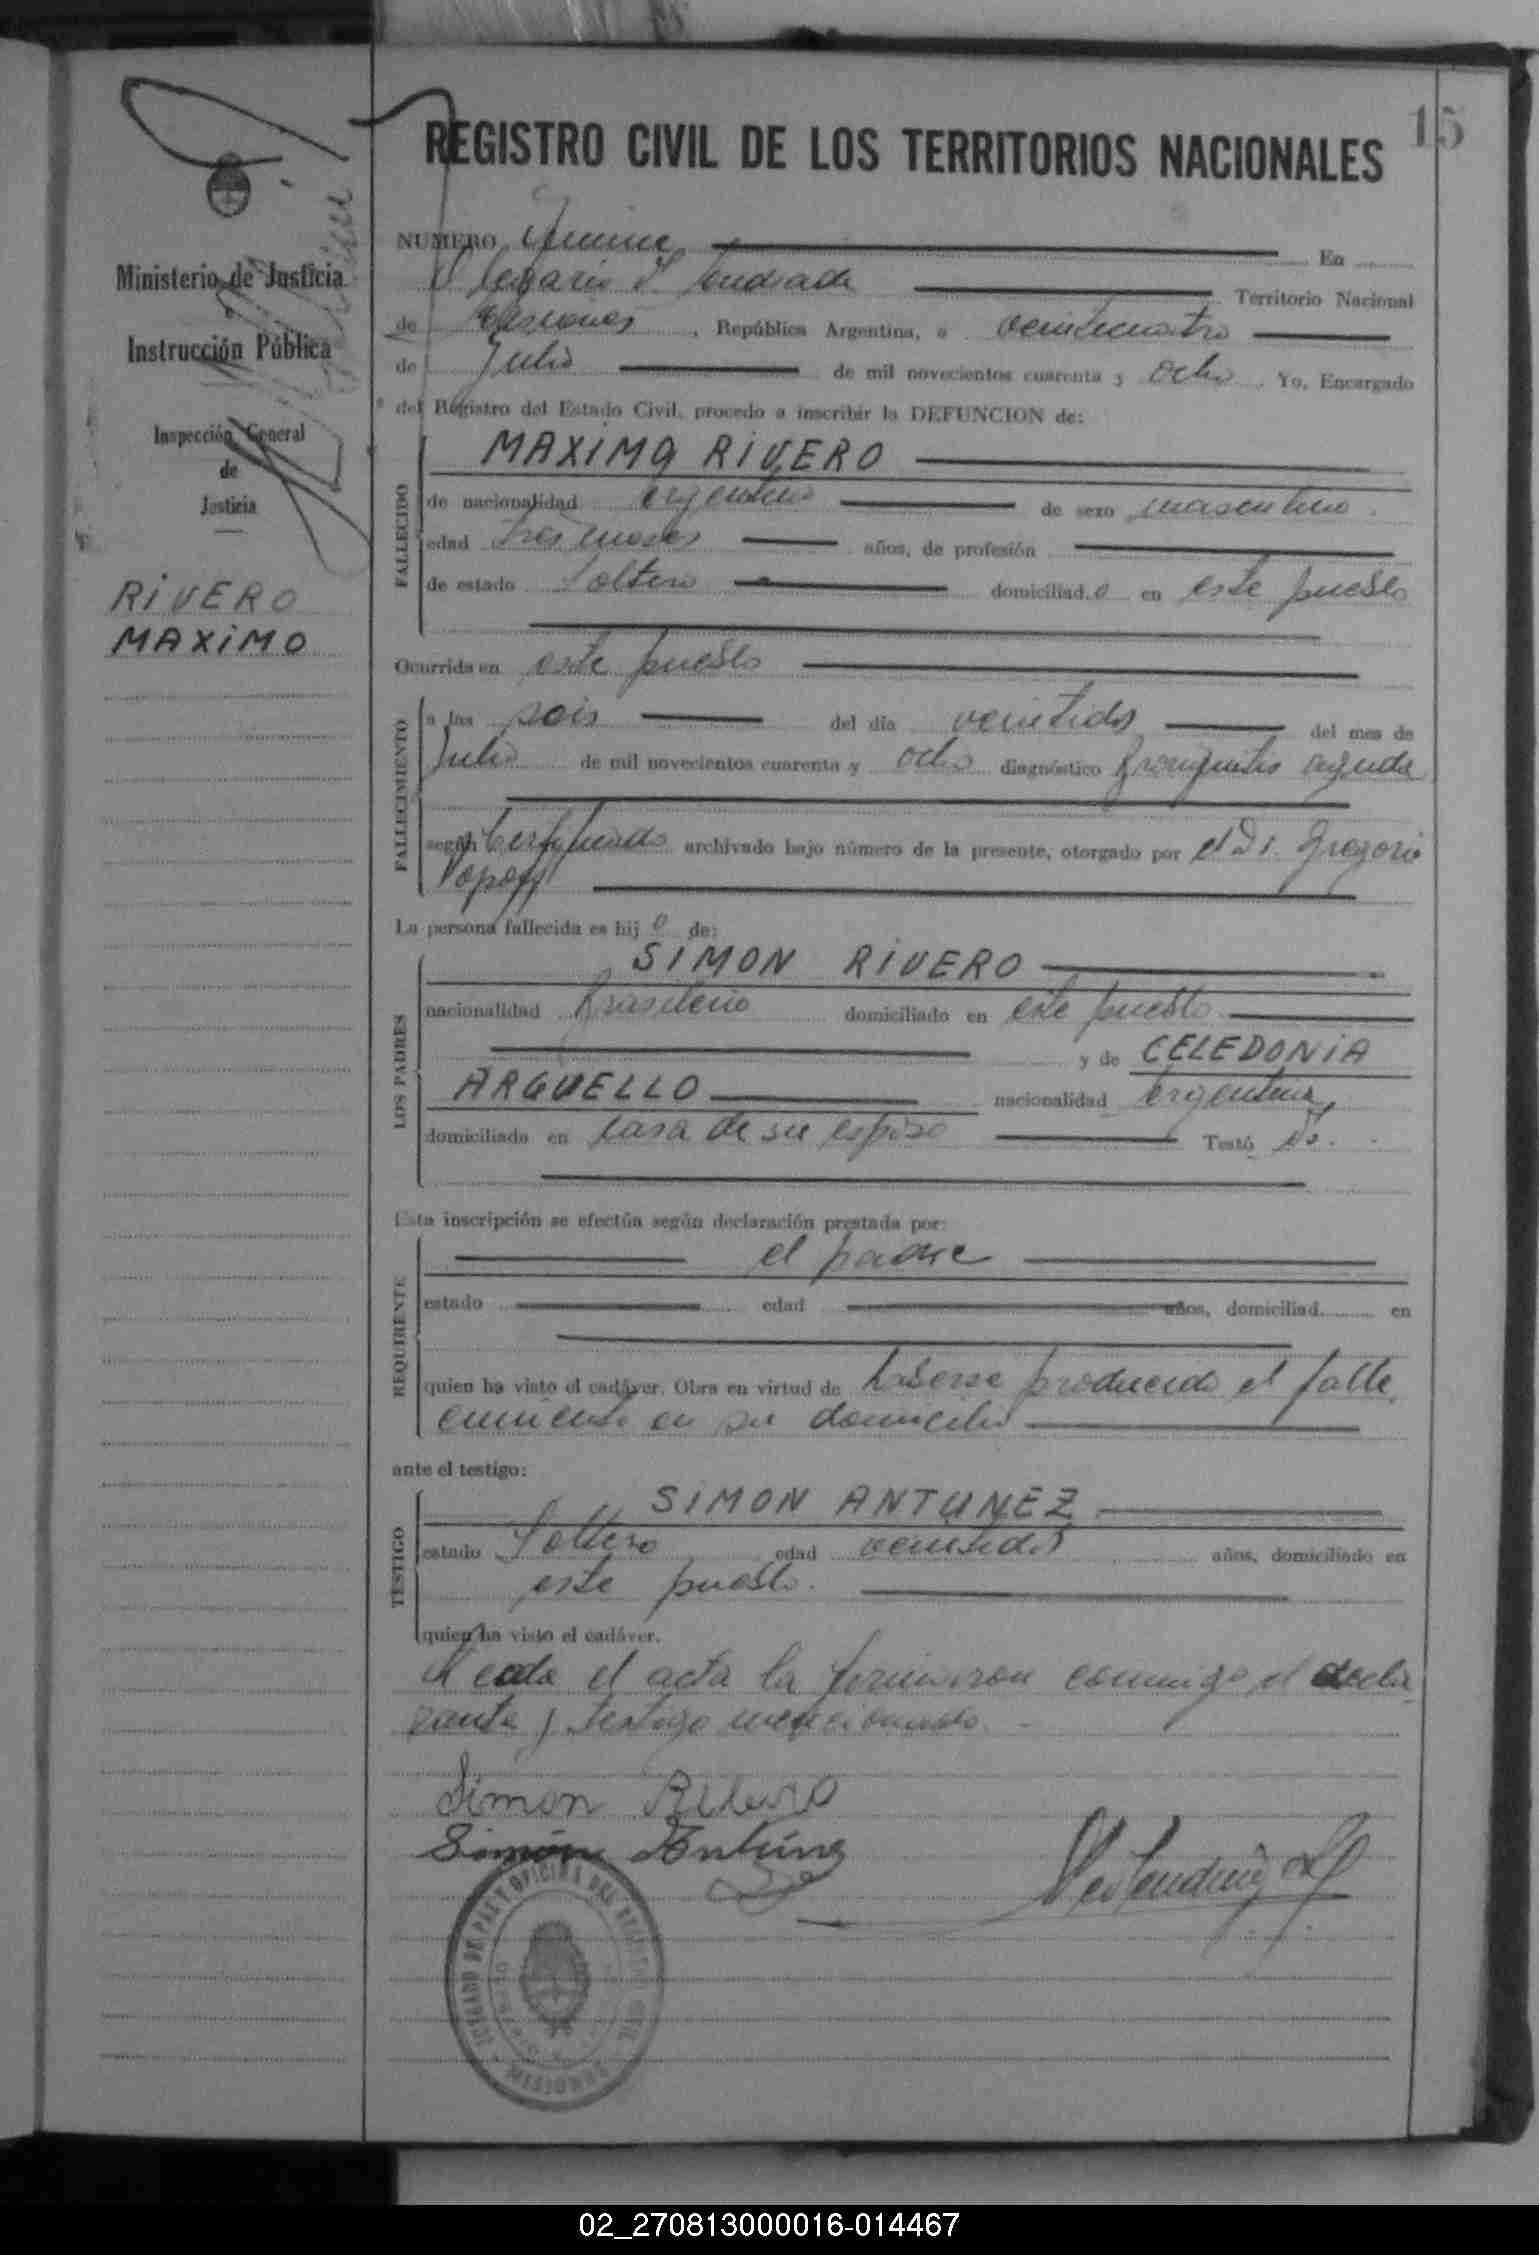 15
REGISTRO CIVIL DE LOS TERRITORIOS NACIONALES
Ministerio de Justicia
e
Instrucción Pública
Inspección General
de
Justicia
RIVERO
MAXIMO
NUMERO Quince En
Olegario V. Andrade Territorio Nacional
de Misiones, República Argentina, a veinticuatro
de Julio de mil novecientos cuarenta y ocho. Yo, Encargado
del Registro del Estado Civil, procedo a inscribir la DEFUNCION de:
FALLECIDO
MAXIMO RIVERO
de nacionalidad argentino de sexo masculino.
edad tres meses años, de profesión
de estado Soltero domiciliad.o en este pueblo
Ocurrida en este pueblo
FALLECIMIENTO
a las seis del día veintidos del mes de
Julio de mil novecientos cuarenta y ocho diagnóstico Bronquitis aguda
según Certificado archivado bajo número de la presente, otorgado por el Dr. Gregorio
Popoff
La persona fallecida es hij o de:
LOS PADRES
SIMON RIVERO
nacionalidad Brasileño domiciliado en este pueblo.
y de CELEDONIA
ARGUELLO nacionalidad argentina,
domiciliada en casa de su esposo Testó
Esta inscripción se efectúa según declaración prestada por:
REQUIRENTE
el padre
estado edad años, domiciliad en
quien ha visto el cadáver. Obra en virtud de haberse producido el falle
cimiento en su domicilio
ante el testigo:
TESTIGO
SIMON ANTUNEZ
estado Soltero edad veintidos años, domiciliado en
este pueblo.
quien ha visto el cadáver.
Leida el acta la firmaron conmigo el decla
rante y testigo mencionado.
Simon Ribero
Simón Antúnez
JUZGADO DE PAZ Y OFICINA DEL REGISTRO CIVIL
MISIONES
02_270813000016-014467